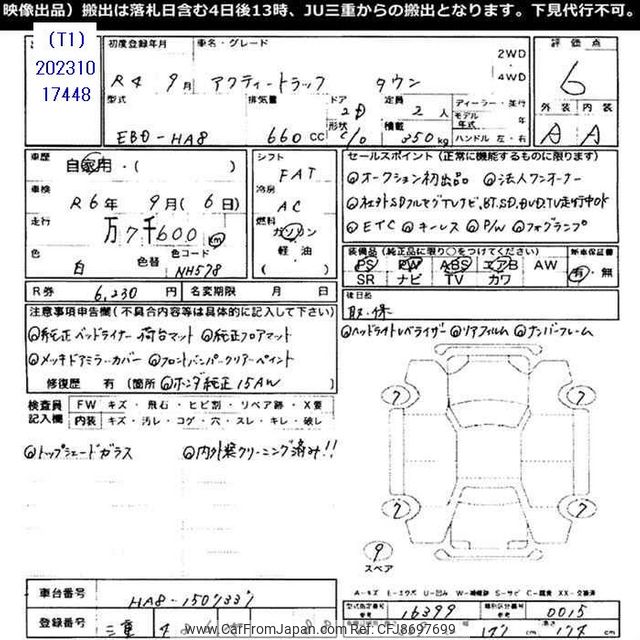 映像出品）搬出は落札日含む4日後13時、JU三重からの搬出となります。下見代行不可。
(T1)
202310
17448
初度登録年月
車名・グレード
2WD
4WD
評価点
R4 9月 アクティートラック タウン
6
型式
排気量
ドア
形状
定員
積載
ディーラー・並行
モデル年式
ハンドル 左・右
外装 内装
EBD-HA8
660 CC
2D
2人
350kg
A A
車歴
自家用・( )
シフト
FAT
セールスポイント (正常に機能するものに限ります)
◎オークション初出品 ◎法人ワンオーナー
車検
R6年 9月(6日)
冷房
AC
◎社外SDフルセグTVナビ.BT.SD.DVD.TV走行中OK
走行
万7千600 km
燃料
ガソリン
軽油
◎ETC ◎キーレス ◎P/W ◎フォグランプ
色
白
色替
色コード
NH578
( )
装備品 (純正品に限り○をつけてください)
新車保証書
PS PW ABS エアB AW
SR ナビ TV カワ
有・無
R券 6,230円
名変期限 月 日
後日品
取.保
注意事項申告欄(不具合内容等は具体的に記入して下さい)
◎純正ベッドライナー 荷台マット ◎純正フロアマット
◎ヘッドライトレベライザー ◎リアフィルム ◎ナンバーフレーム
◎メッキドアミラーカバー ◎フロントバンパークリアーペイント
修復歴 有 (箇所 ◎ホンダ純正15AW
検査員
記入欄
FW キズ・飛石・ヒビ割・リペア跡・X要
内装 キズ・汚レ・コゲ・穴・スレ・キレ・破レ
◎トップシェードガラス ◎内外装クリーニング済み!!
7
7
7
7
9
スペア
車台番号
HA8-1507337
登録番号
三重
型式指定番号
16399
類別区分番号
0015
www.CarFromJapan.com Ref: CFJ8697699